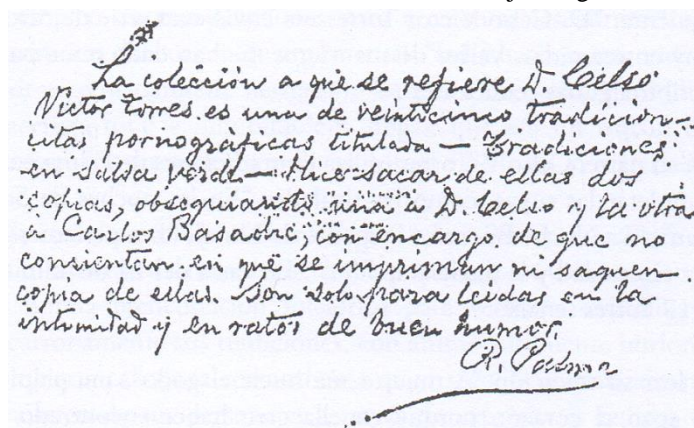 La colección a qe se refiere D. Celso
Victor Torres es una de veinticinco tradicion-
citas pornográficas titulada — Tradiciones
en salsa verde — Hice sacar de ellas dos
copias, obsequiando una a D. Celso y la otra
a Carlos Basadre, con encargo de que no
consientan en qe se impriman ni saquen
copia de ellas. Son solo para leidas en la
intimidad y en ratos de buen humor.
R. Palma